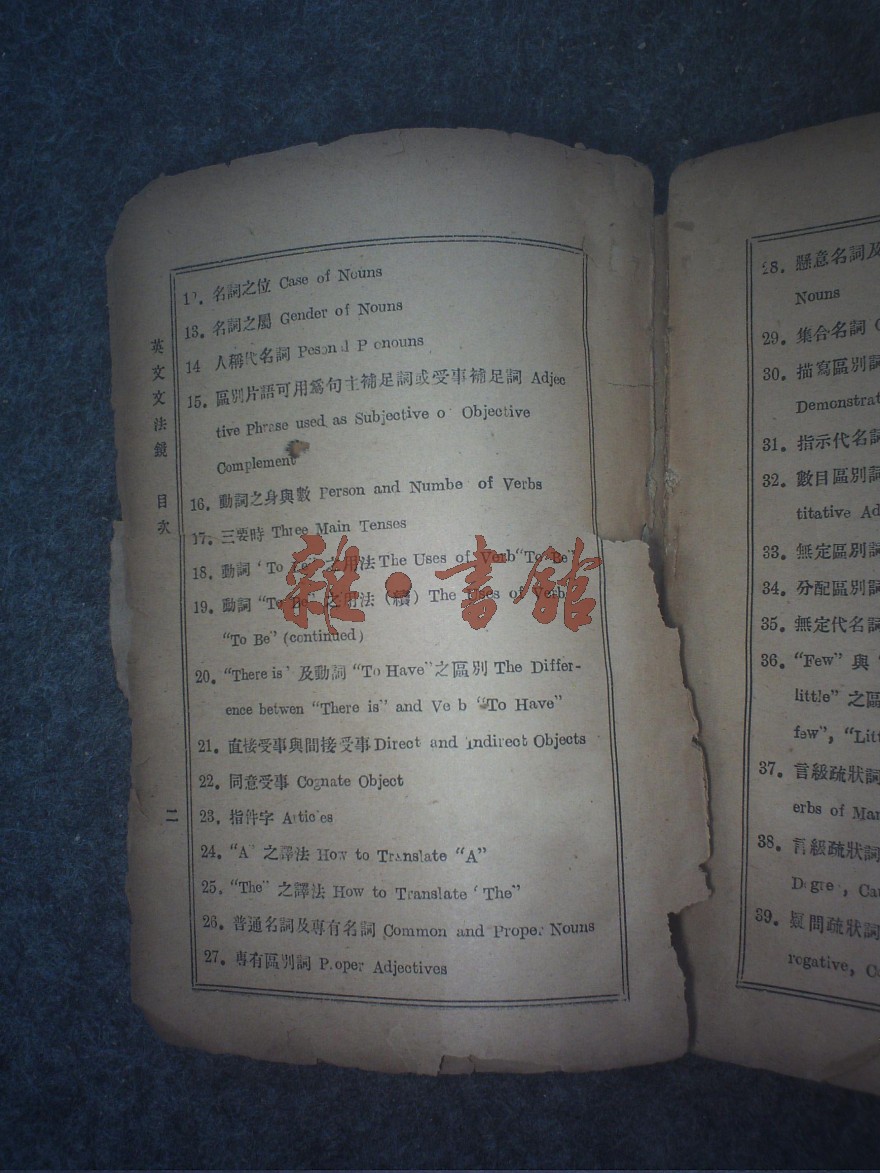 英文文法鏡 目次
二
12. 名詞之位 Case of Nouns
13. 名詞之屬 Gender of Nouns
14 人稱代名詞 Pesonal Pronouns
15. 區別片語可用爲句主補足詞或受事補足詞 Adjec
tive Phrase used as Subjective or Objective
Complement
16. 動詞之身與數 Person and Numbe of Verbs
17. 三要時 Three Main Tenses
18. 動詞 "To Be" 之用法 The Uses of Verb "To Be"
19. 動詞 "To Be" 之用法 (續) The Uses of Verb
"To Be" (continued)
20. "There is" 及動詞 "To Have" 之區別 The Differ-
ence betwen "There is" and Verb "To Have"
21. 直接受事與間接受事 Direct and Indirect Objects
22. 同意受事 Cognate Object
23. 指件字 Articles
24. "A" 之譯法 How to Translate "A"
25. "The" 之譯法 How to Translate "The"
26. 普通名詞及專有名詞 Common and Proper Nouns
27. 專有區別詞 Proper Adjectives
雜·書館
28. 懸意名詞及
Nouns
29. 集合名詞
30. 描寫區別詞
Demonstrat
31. 指示代名詞
32. 數目區別詞
titative Ad
33. 無定區別詞
34. 分配區別詞
35. 無定代名詞
36. "Few" 與
little" 之區
few", "Litt
37. 言級疏狀詞
erbs of Man
38. 言級疏狀詞
Degre, Cau
39. 疑問疏狀詞
rogative,